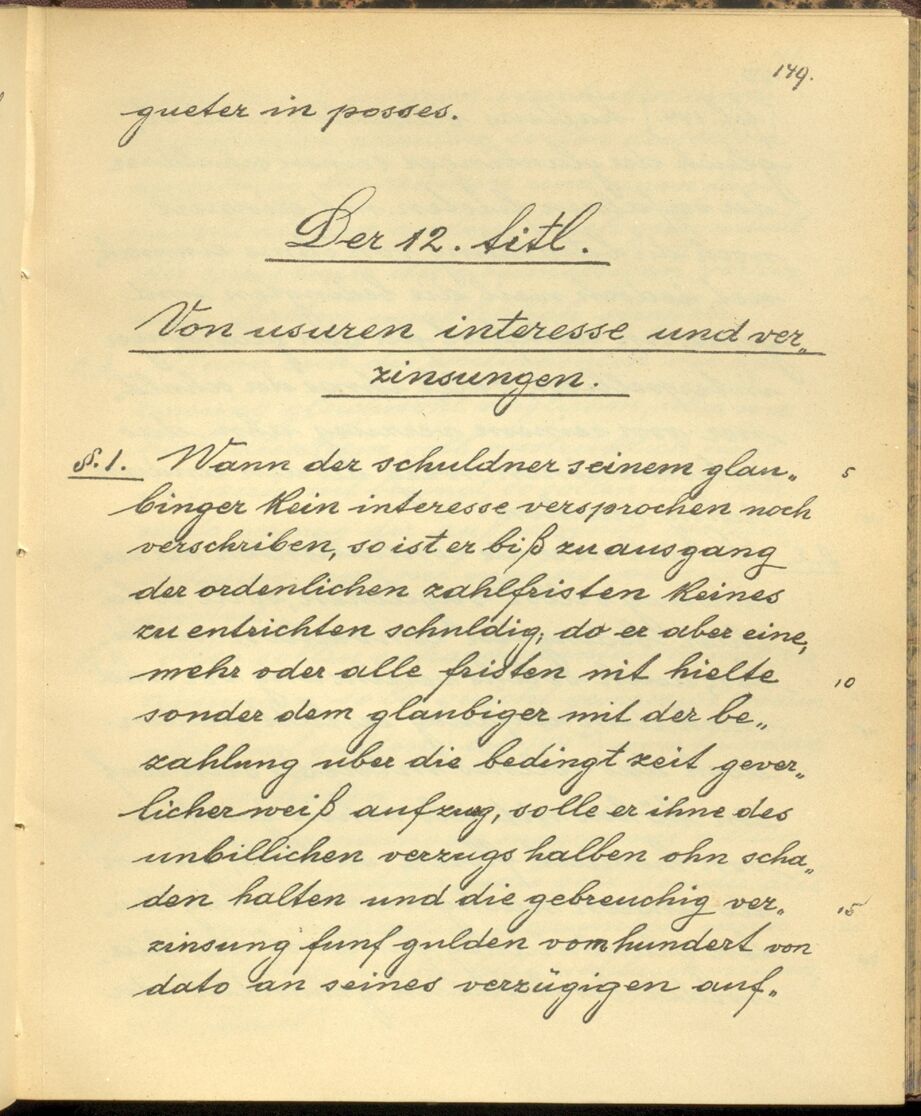 149.
gueter in posses.
Der 12. titl.
Von usuren interesse und ver„
zinsungen.
§. 1. Wann der schuldner seinem glau„ 5
binger kein interesse versprochen noch
verschriben, so ist er biß zu ausgang
der ordenlichen zahlfristen keines
zu entrichten schuldig; do er aber eine,
mehr oder alle fristen nit hielte 10
sonder dem glaubiger mit der be„
zahlung uber die bedingt zeit gever„
licher weiß aufzueg, solle er ihne des
unbillichen verzugs halben ohn scha„
den halten und die gebreuchig ver„ 15
zinsung funf gulden vom hundert von
dato an seines verzügigen auf„